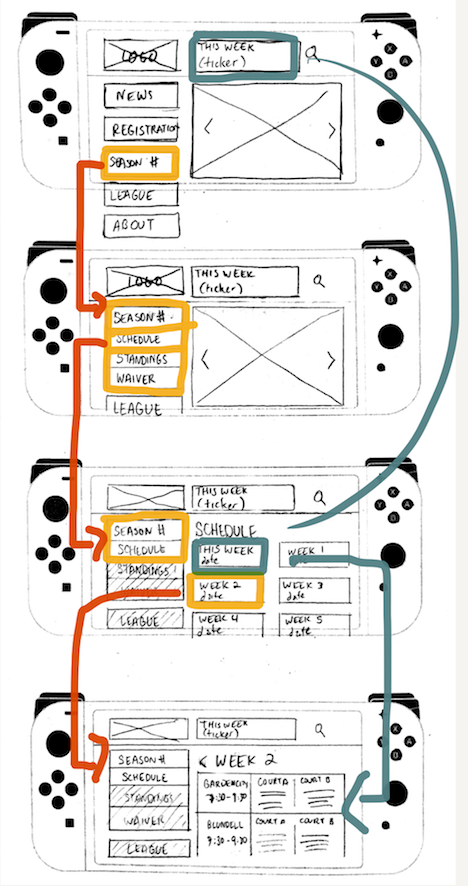 LOGO
THIS WEEK
(ticker)
X
Y
A
B
NEWS
REGISTRATION
SEASON #
LEAGUE
ABOUT
LOGO
THIS WEEK
(ticker)
X
Y
A
B
SEASON #
SCHEDULE
STANDINGS
WAIVER
LEAGUE
THIS WEEK
(ticker)
X
Y
A
B
SEASON #
SCHEDULE
STANDINGS
LEAGUE
SCHEDULE
THIS WEEK
date
WEEK 1
WEEK 2
date
WEEK 3
date
WEEK 4
date
WEEK 5
date
THIS WEEK
(ticker)
X
Y
A
B
SEASON #
SCHEDULE
STANDINGS
WAIVER
LEAGUE
< WEEK 2
GARDENCITY
7:30-9:30
COURT A
COURT B
BLUNDELL
7:30-9:30
COURT A
COURT B